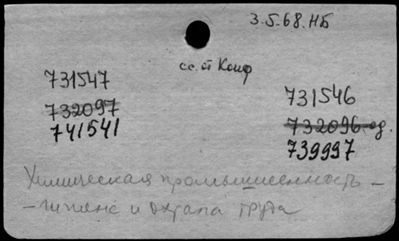 3.5.68.НБ
731547
732097
741541
731546
732096 од.
739997
Химическая промышленность –
– гигиена и охрана труда